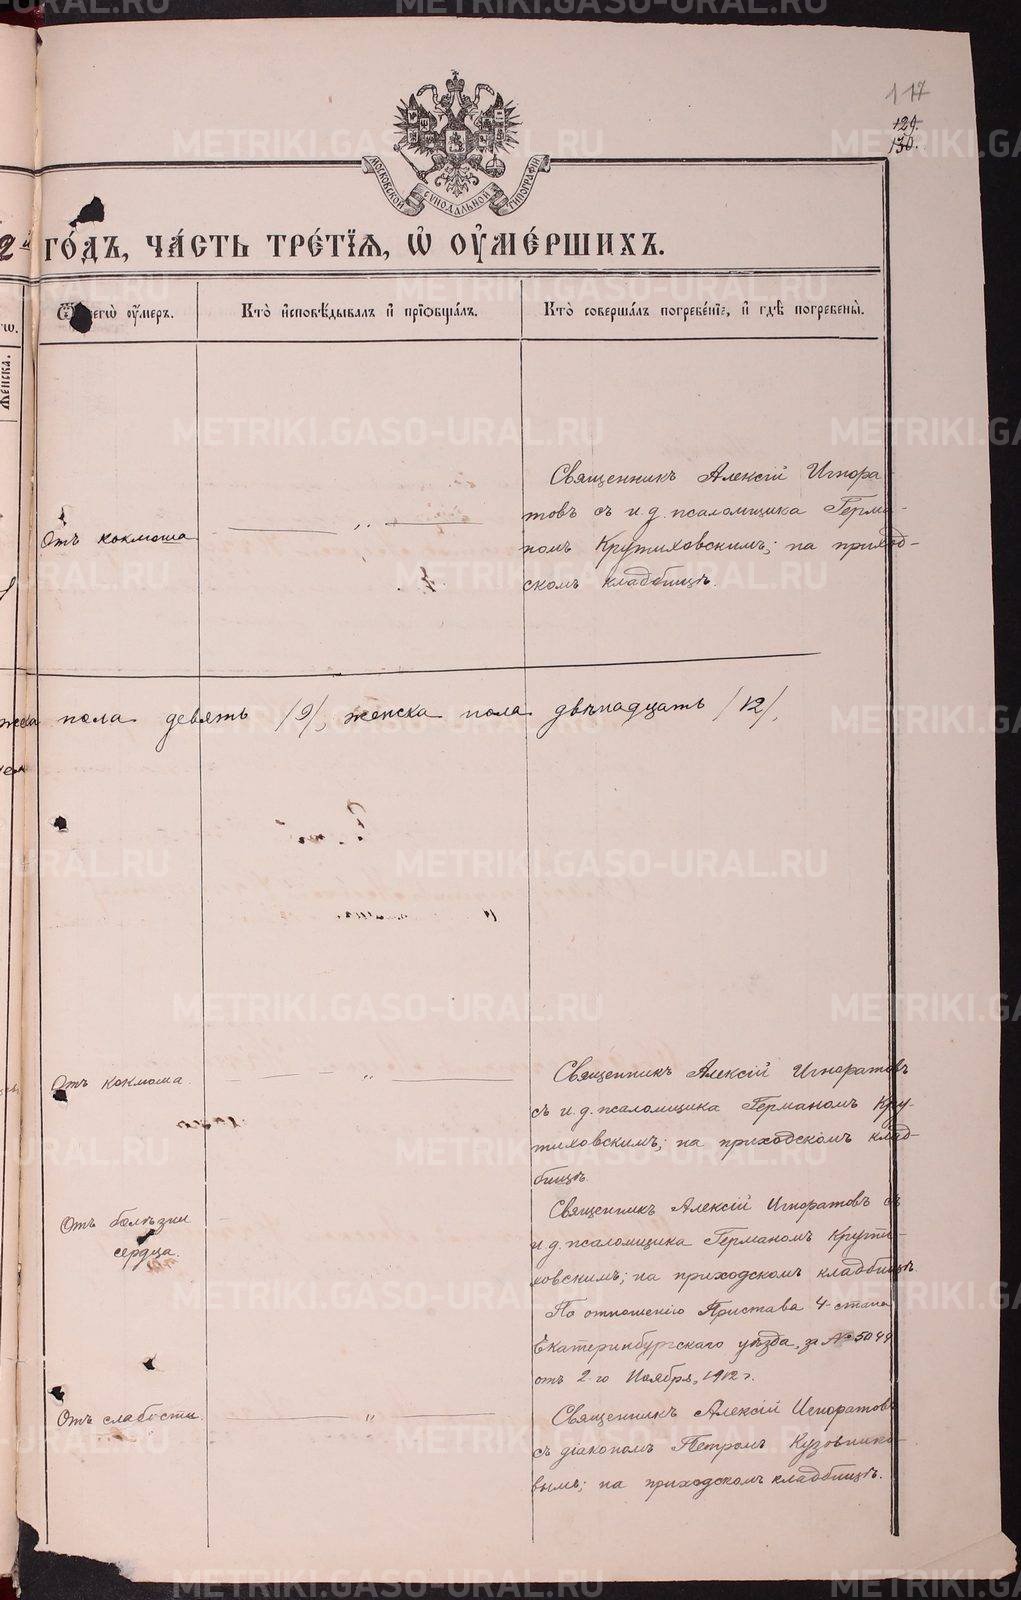 117
129.
130.
МОСКОВСКОЙ СѴНОДАЛЬНОЙ ТИПОГРАФІИ
2й ГО́ДЪ, ЧА́СТЬ ТРЕ́ТІѦ, Ѡ҆ ОУ҆МЕ́РШИХЪ.
Ѿ чегѡ̀ оу҆́меръ.
Кто̀ и҆сповѣ́дывалъ и҆ прїѡбща́лъ.
Кто̀ соверша́лъ погребе́нїе, и҆ гдѣ̀ погребены̀.
Же́нска.
Отъ коклюша
"
Священникъ Алексій Игнора-
товъ съ и.д. псаломщика Герма-
номъ Крутиховскимъ; на приход-
скомъ кладбищѣ.
пола девять /9/, женска пола двѣнадцать /12/,
Отъ коклюша.
"
Священникъ Алексій Игноратовъ
съ и.д. псаломщика Германомъ Кру-
тиховскимъ; на приходскомъ клад-
бищѣ.
Отъ болѣзни
сердца.
Священникъ Алексій Игноратовъ съ
и.д. псаломщика Германомъ Крути-
ховскимъ; на приходскомъ кладбищѣ
По отношенію Пристава 4-стана
Екатеринбургскаго уѣзда, за № 5044
отъ 2-го Ноября, 1912 г.
Отъ слабости.
"
Священникъ Алексій Игноратовъ
съ діакономъ Петромъ Кузовнико-
вымъ; на приходскомъ кладбищѣ.
METRIKI.GASO-URAL.RU